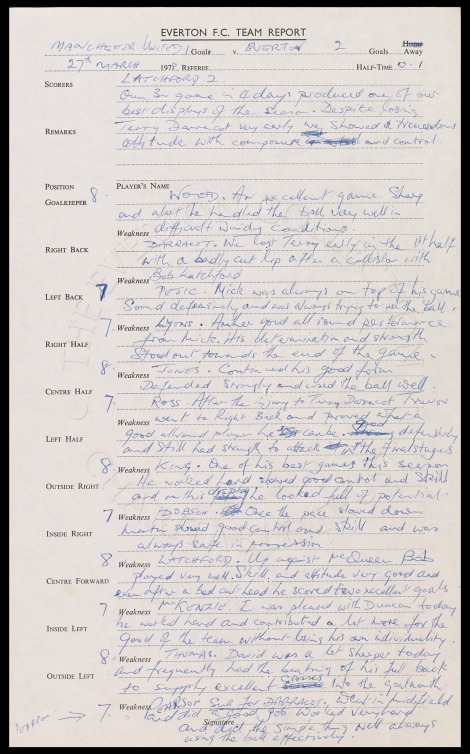 EVERTON F.C. TEAM REPORT
MANCHESTER UNITED 1 Goals v. EVERTON 2 Goals Home Away
27th MARCH 1978 REFEREE HALF-TIME 0-1
SCORERS LATCHFORD 2
Our 3rd game in 4 days produced one of our
best displays of the season. Despite losing
REMARKS Terry Darracot very early we showed a tremendous
attitude with composure and control
POSITION PLAYER'S NAME
GOALKEEPER 8. WOOD. An excellent game Sharp
and alert he handled the ball very well in
Weakness difficult windy conditions.
RIGHT BACK DARRACOT. We lost Terry early in the 1st half
with a badly cut lip after a collision with
Weakness Bob Latchford
LEFT BACK 7 PEJIC. Mick was always on top of his game
Sound defensively and was always trying to use the ball.
RIGHT HALF 7. Weakness Lyons. Another good all round performance
from Mick. His determination and strength
Stood out towards the end of the game.
CENTRE HALF 8. Weakness JONES. Continued his good form
Defended strongly and used the ball well.
LEFT HALF 7. Ross. After the injury to Terry Darracot Trevor
went to Right Back and proved what a
good allround player he can be. Good defensively
and still had strength to attack in the final stages
OUTSIDE RIGHT 8 Weakness King. One of his best games this season
He worked hard showed good control and skill
and on this display he looked full of potential.
INSIDE RIGHT 7 Weakness DOBSON. Once the pace slowed down
Martin showed good control and skill and was
always safe in possession
CENTRE FORWARD 8 Weakness LATCHFORD. Up against McQueen Bob
played very well. Skill and attitude very good and
even after a bad cut head he scored two excellent goals
INSIDE LEFT 7 Weakness McKENZIE I was pleased with Duncan today
he worked hard and contributed a lot more for the
good of the team without losing his own individuality.
OUTSIDE LEFT 8. Weakness THOMAS. David was a lot sharper today
and frequently had the beating of his full back
to supply excellent crosses into the goalmouth
7. Weakness Sub for DARRACOT. Went in midfield
and did a good job worked very hard
Signature and did the simple thing well always
using the ball effectively.